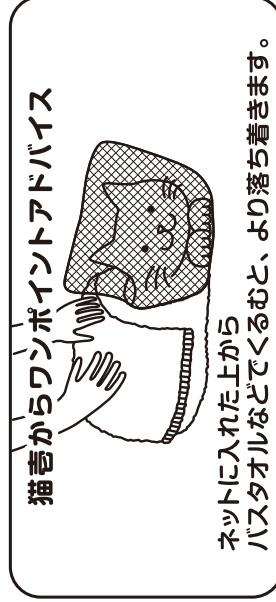 猫壱からワンポイントアドバイス
ネットに入れた上から
バスタオルなどでくるむと、より落ち着きます。